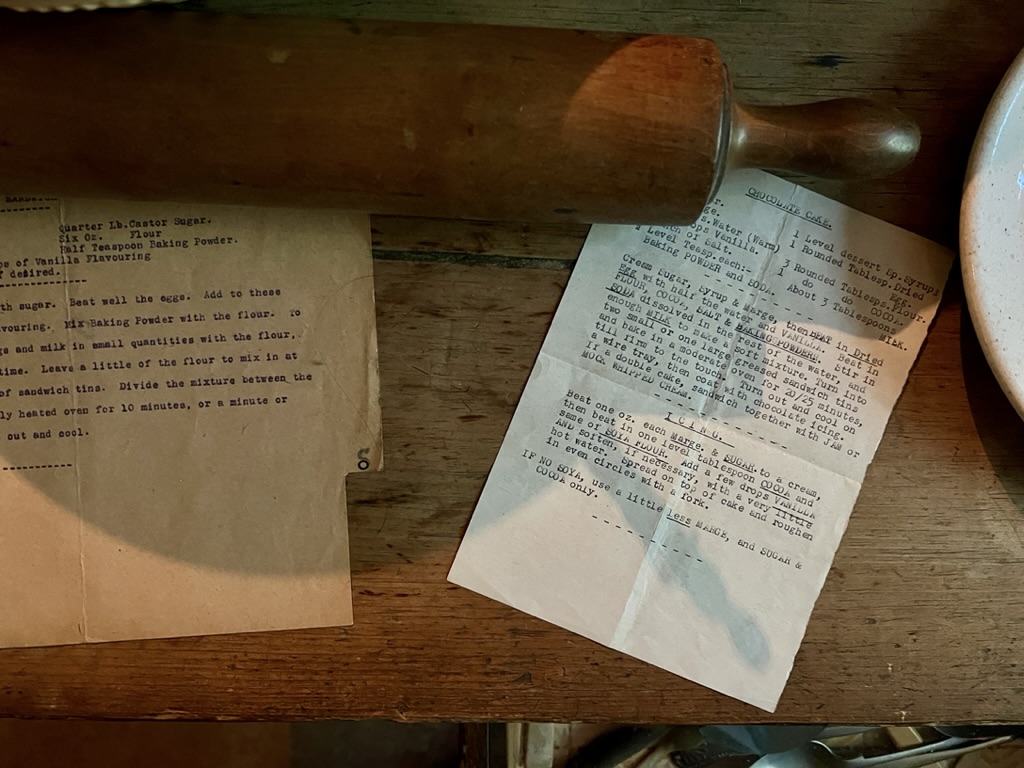 quarter Lb. Castor Sugar.
Six Oz. Flour
Half Teaspoon Baking Powder.
of Vanilla Flavouring
desired.
sugar. Beat well the eggs. Add to these
Mix Baking Powder with the flour. To
and milk in small quantities with the flour,
time. Leave a little of the flour to mix in at
of sandwich tins. Divide the mixture between the
heated oven for 10 minutes, or a minute or
out and cool.
CHOCOLATE CAKE.
1 Level dessert Sp. Syrup,
1 Rounded Tablesp. Dried Egg.
Water (Warm)
3 Rounded Tablesps. Flour.
Vanilla.
1 do do COCOA.
of Salt.
About 3 Tablespoons MILK.
1 Level Teasp. each:-
Baking POWDER and SODA.
Cream Sugar, Syrup & Marge, then BEAT in Dried
Egg with half the water and VANILLA. Beat in
FLOUR, COCOA, SALT & BAKING POWDER. Stir in
SODA dissolved in the rest of the water, and
enough MILK to make a soft mixture, Turn into
two small or one large greased sandwich tins
and bake in a moderate oven for 20/25 minutes,
till firm to the touch. Turn out and cool on
a wire tray, then coat with chocolate icing.
If a double cake, sandwich together with JAM or
MOC. WHIPPED CREAM.
ICING.
Beat one oz. each Marge. & SUGAR to a cream,
then beat in one level tablespoon COCOA and
same of SOYA FLOUR. Add a few drops VANILLA
AND soften, if necessary, with a very little
hot water. Spread on top of cake and roughen
in even circles with a fork.
IF NO SOYA, use a little Less MARGE, and SUGAR &
COCOA only.